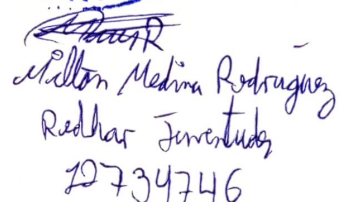 Milton Medina Rodriguez
Redhar Juventudes
12734746